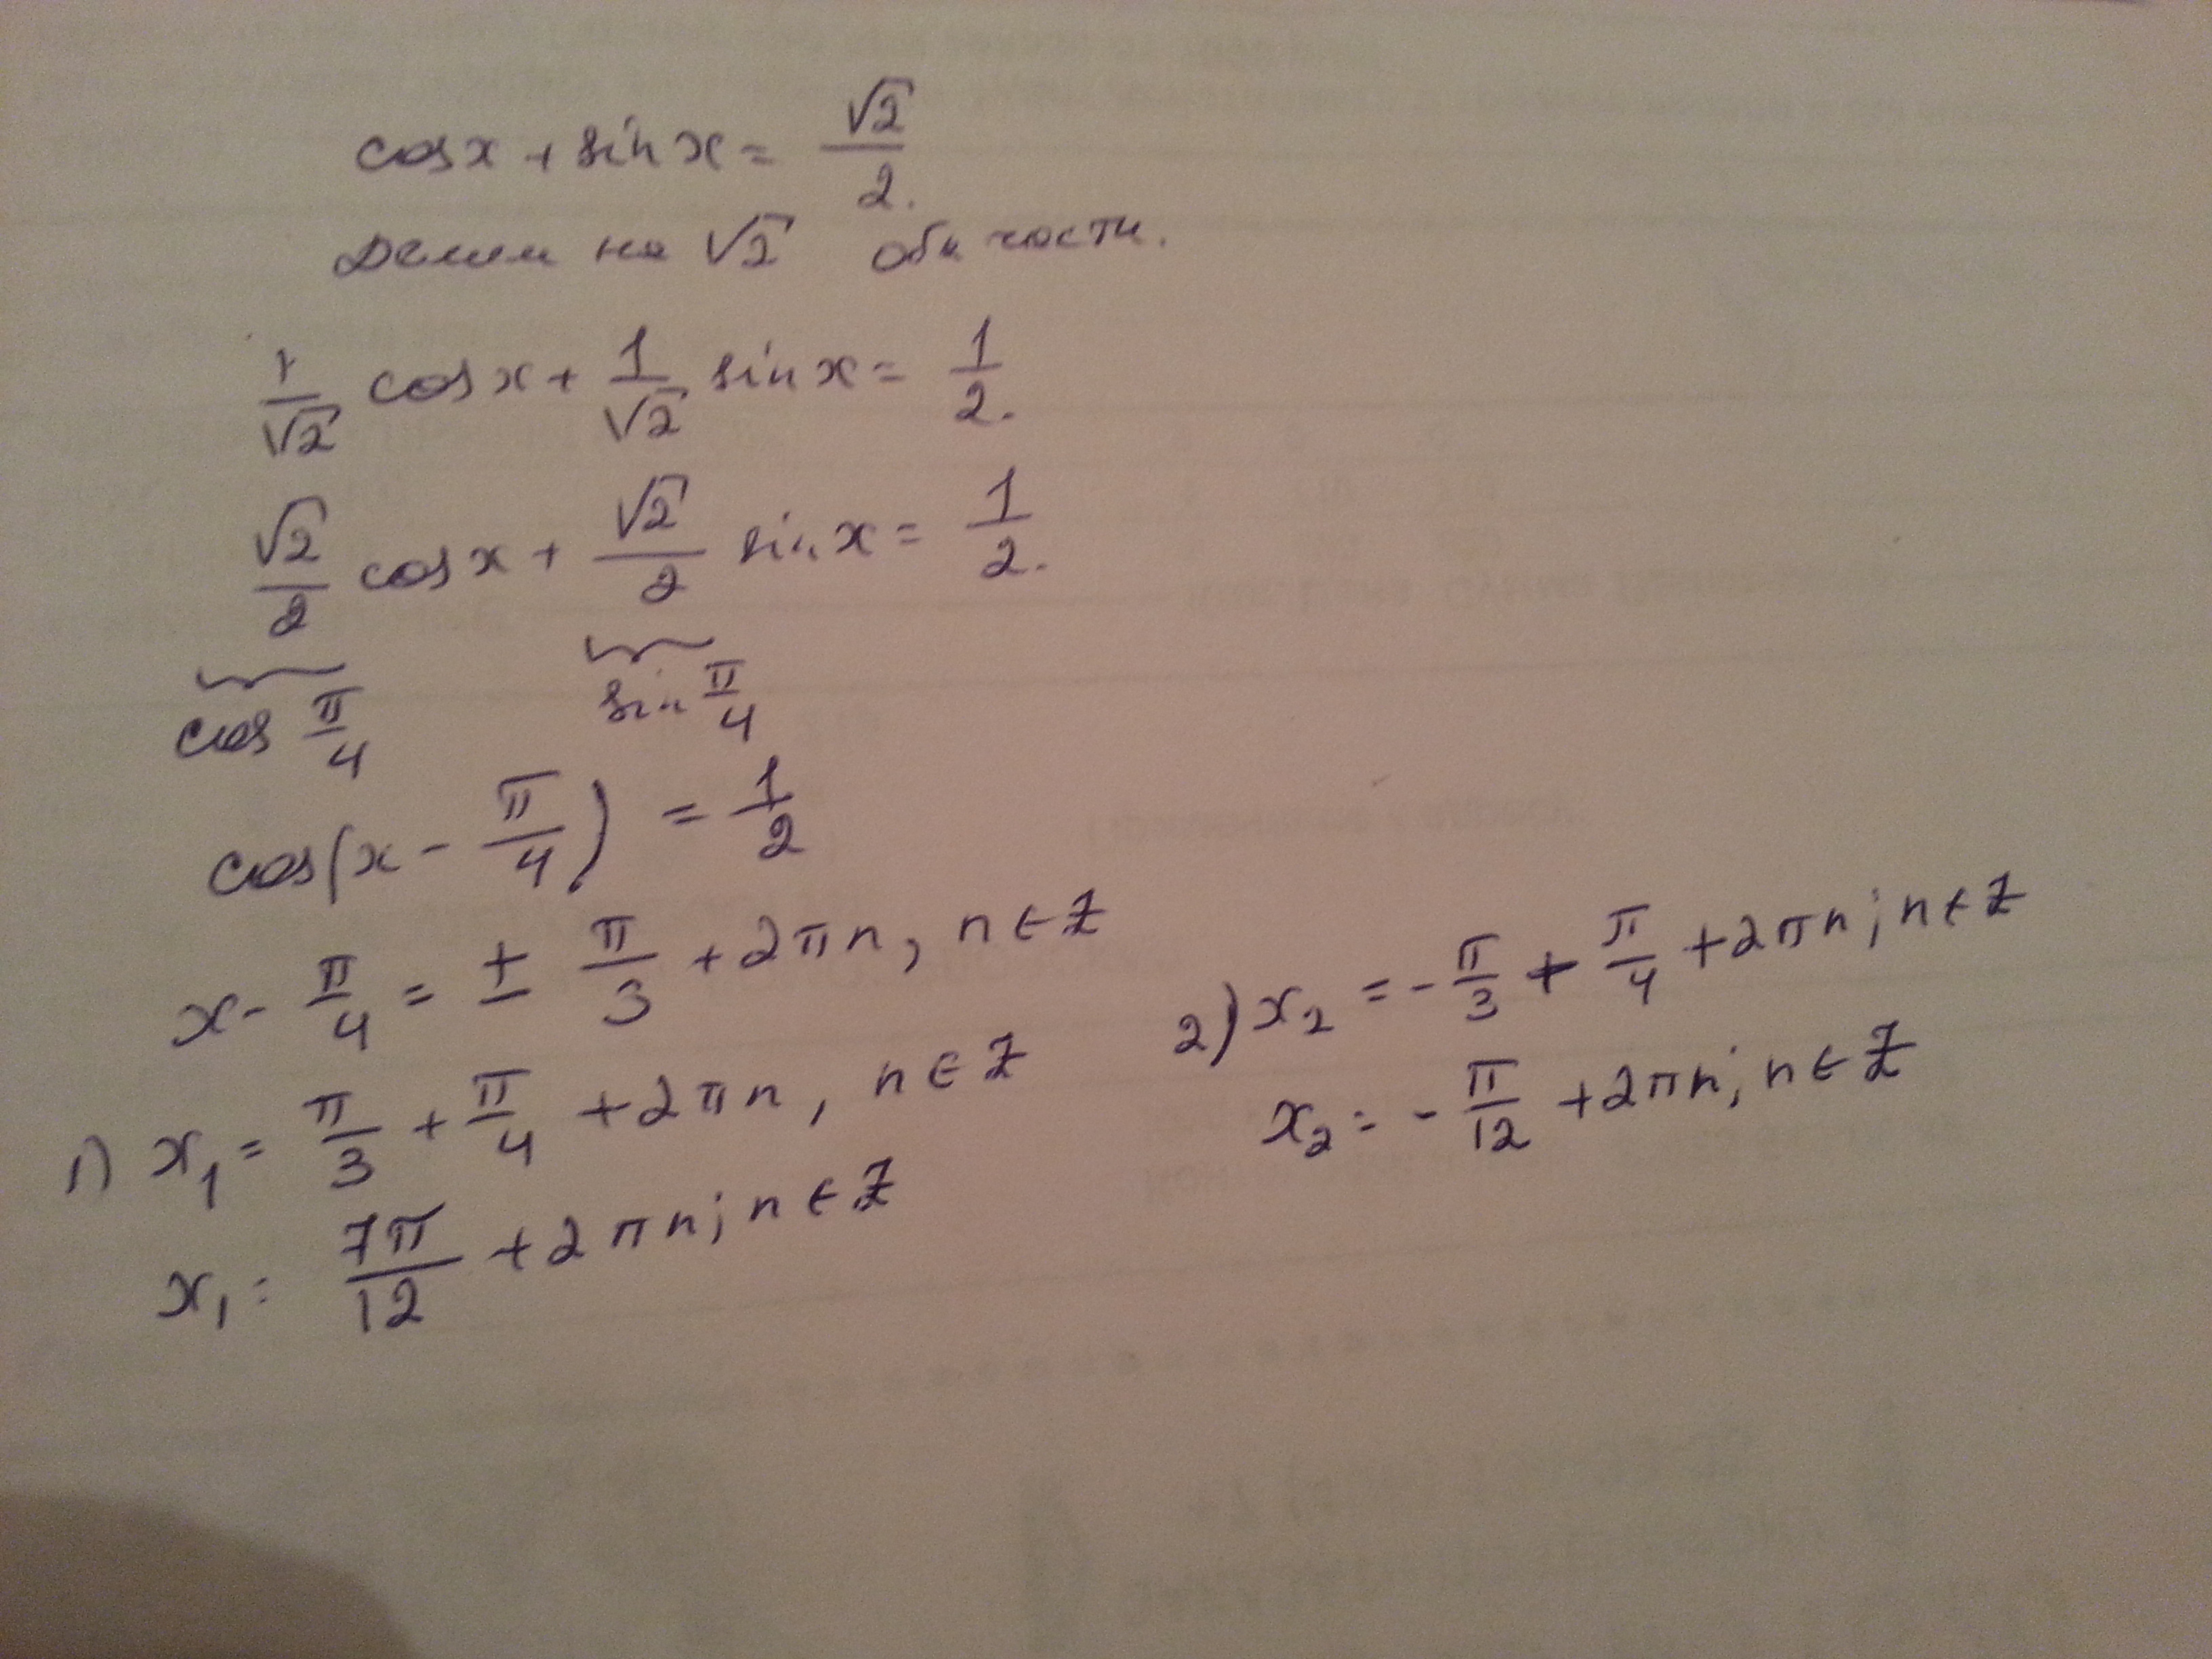 cos x + sin x = √2/2.
Делим на √2 обе части.
1/√2 cos x + 1/√2 sin x = 1/2.
√2/2 cos x + √2/2 sin x = 1/2.
cos π/4 sin π/4
cos(x - π/4) = 1/2
x - π/4 = ± π/3 + 2πn, n ∈ Z
1) x₁ = π/3 + π/4 + 2πn, n ∈ Z
x₁ = 7π/12 + 2πn; n ∈ Z
2) x₂ = - π/3 + π/4 + 2πn; n ∈ Z
x₂ = - π/12 + 2πn; n ∈ Z